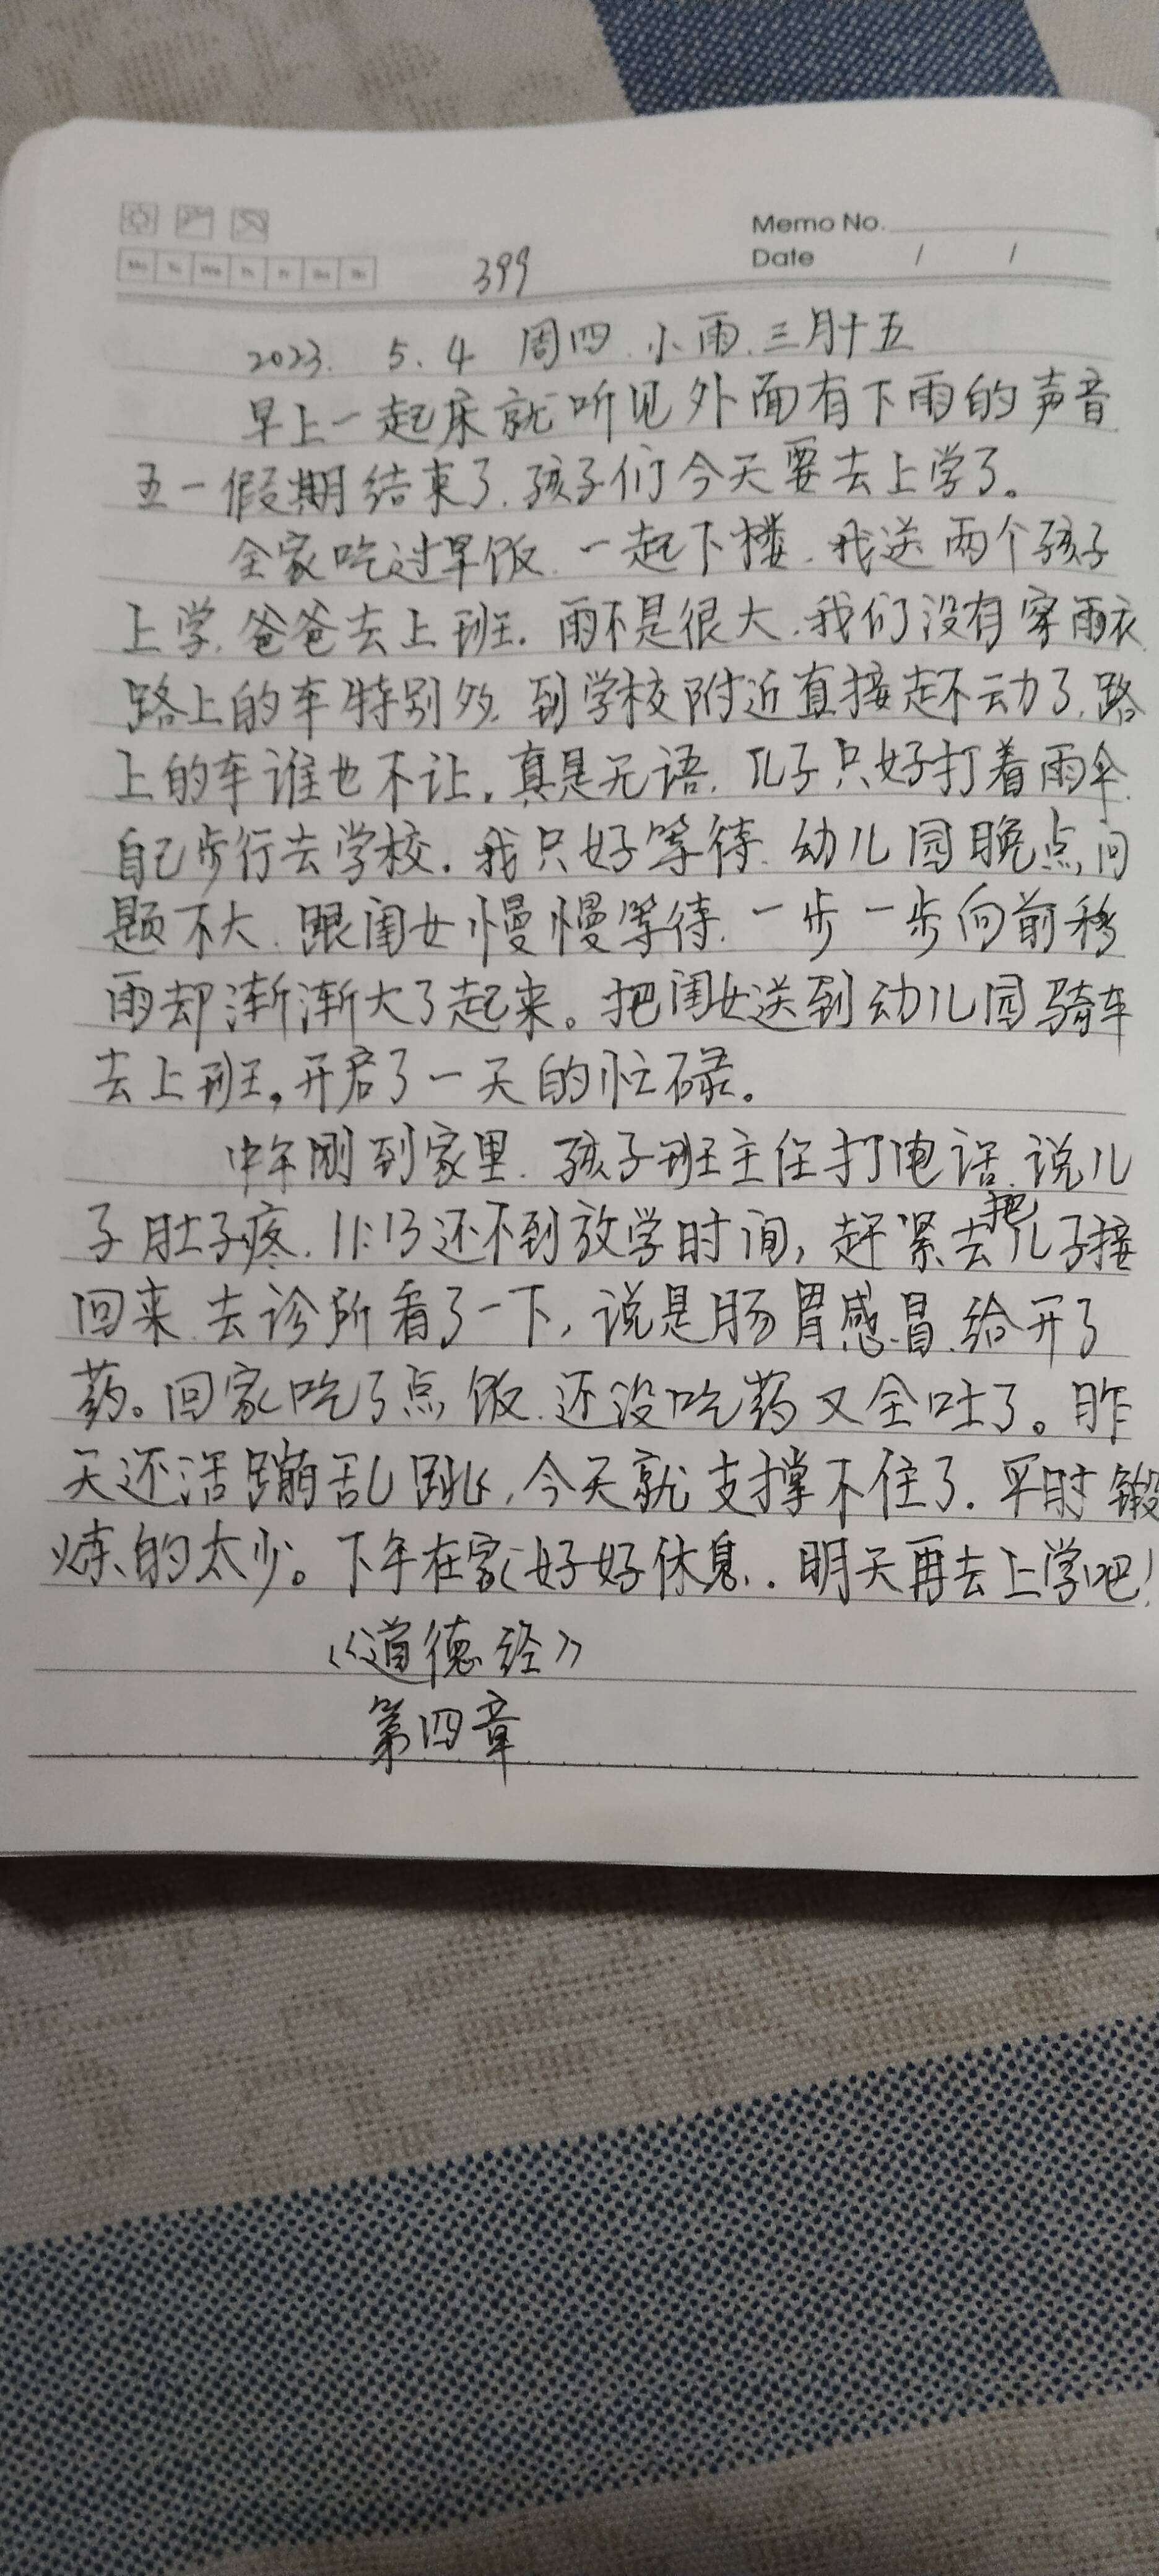 Memo No.
Mo Tu We Th Fr Sa Su
399
Date / /
2023. 5.4 周四.小雨.三月十五
早上一起床就听见外面有下雨的声音
五一假期结束了.孩子们今天要去上学了。
全家吃过早饭.一起下楼.我送两个孩子
上学.爸爸去上班.雨不是很大.我们没有穿雨衣.
路上的车特别多.到学校附近直接走不动了.路
上的车谁也不让.真是无语.儿子只好打着雨伞.
自己步行去学校.我只好等待.幼儿园晚点问
题不大.跟闺女慢慢等待.一步一步向前移
雨却渐渐大了起来。把闺女送到幼儿园骑车
去上班,开启了一天的忙碌。
中午刚到家里.孩子班主任打电话.说儿
子肚子疼.11:13还不到放学时间,赶紧去把儿子接
回来.去诊所看了一下,说是肠胃感冒.给开了
药。回家吃了点饭.还没吃药又全吐了。昨
天还活蹦乱跳,今天就支撑不住了.平时锻
炼的太少。下午在家好好休息..明天再去上学吧!
《道德经》
第四章